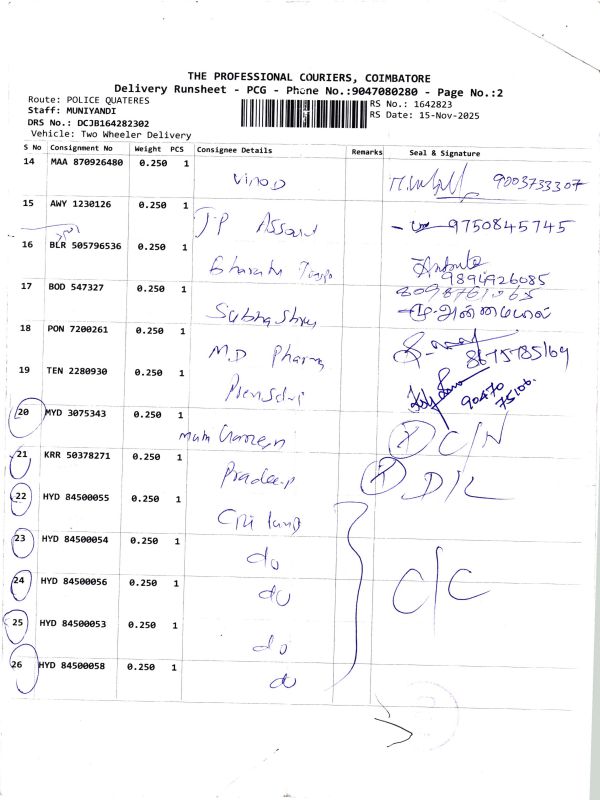 THE PROFESSIONAL COURIERS, COIMBATORE
Delivery Runsheet - PCG - Phone No.:9047080280 - Page No.:2
Route: POLICE QUATERES
Staff: MUNIYANDI
DRS No.: DCJB164282302
Vehicle: Two Wheeler Delivery
RS No.: 1642823
RS Date: 15-Nov-2025
S No Consignment No Weight PCS Consignee Details Remarks Seal & Signature
14 MAA 870926480 0.250 1 Vinod 9003733307
15 AWY 1230126 0.250 1 J.P 9750845745
16 BLR 505796536 0.250 1 9894926085
17 BOD 547327 0.250 1
18 PON 7200261 0.250 1 M.D Pharma 8675785169
19 TEN 2280930 0.250 1 90470
75106
20 MYD 3075343 0.250 1 C/N
21 KRR 50378271 0.250 1 Pradeep D/L
22 HYD 84500055 0.250 1
23 HYD 84500054 0.250 1 do
24 HYD 84500056 0.250 1 do C/C
25 HYD 84500053 0.250 1 do
26 HYD 84500058 0.250 1 do